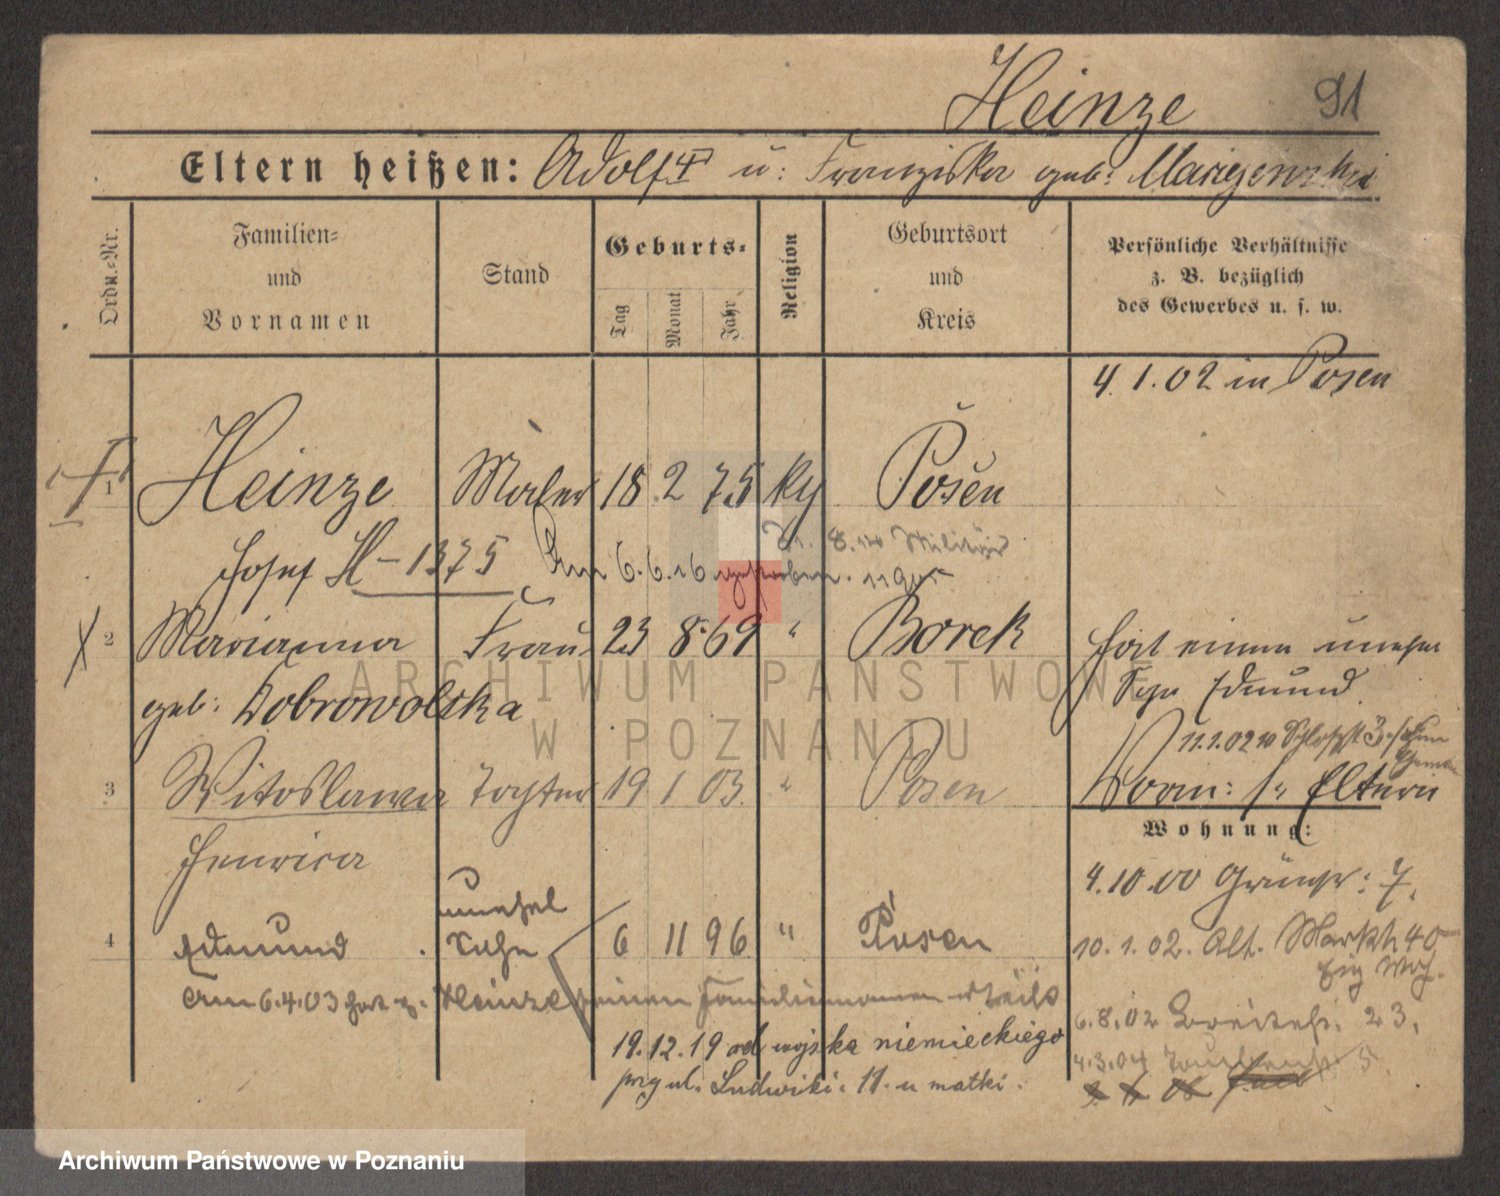 Heinze 91
Eltern heißen: Adolf u: Franziska geb:
Ordn.-Nr.
Familien- und Vornamen
Stand
Geburts-
Tag
Monat
Jahr
Religion
Geburtsort und Kreis
Persönliche Verhältnisse
z. B. bezüglich
des Gewerbes u. s. w.
4. 1. 02 in Posen
1 Heinze Maler 18. 2 75 Posen
8. Militär
Josef H-1375 Am 6.6.16 gestorben.
2 Marianna Frau 23 8. 69 " Borek
geb: Dobrowolska
hat einen unehel
Sohn Edmund
11.1.02
3 Witoslawa Tochter 19 1 03. " Posen
Vorm: s. Eltern
Henrica
Wohnung:
4.10.00 7.
unehel
4 Edmund. Sohn 6 11 96 " Posen
10. 1. 02. Alt. Markt 40
Am 6.4.03 hat Heinze seinen Familiennamen erteilt
6.8.02 Breitestr. 23.
19.12.19 od wojska niemieckiego
4.3.04 5.
przy ul. Ludwiki. 11. u matki.
ARCHIWUM PAŃSTWOWE
W POZNANIU
Archiwum Państwowe w Poznaniu